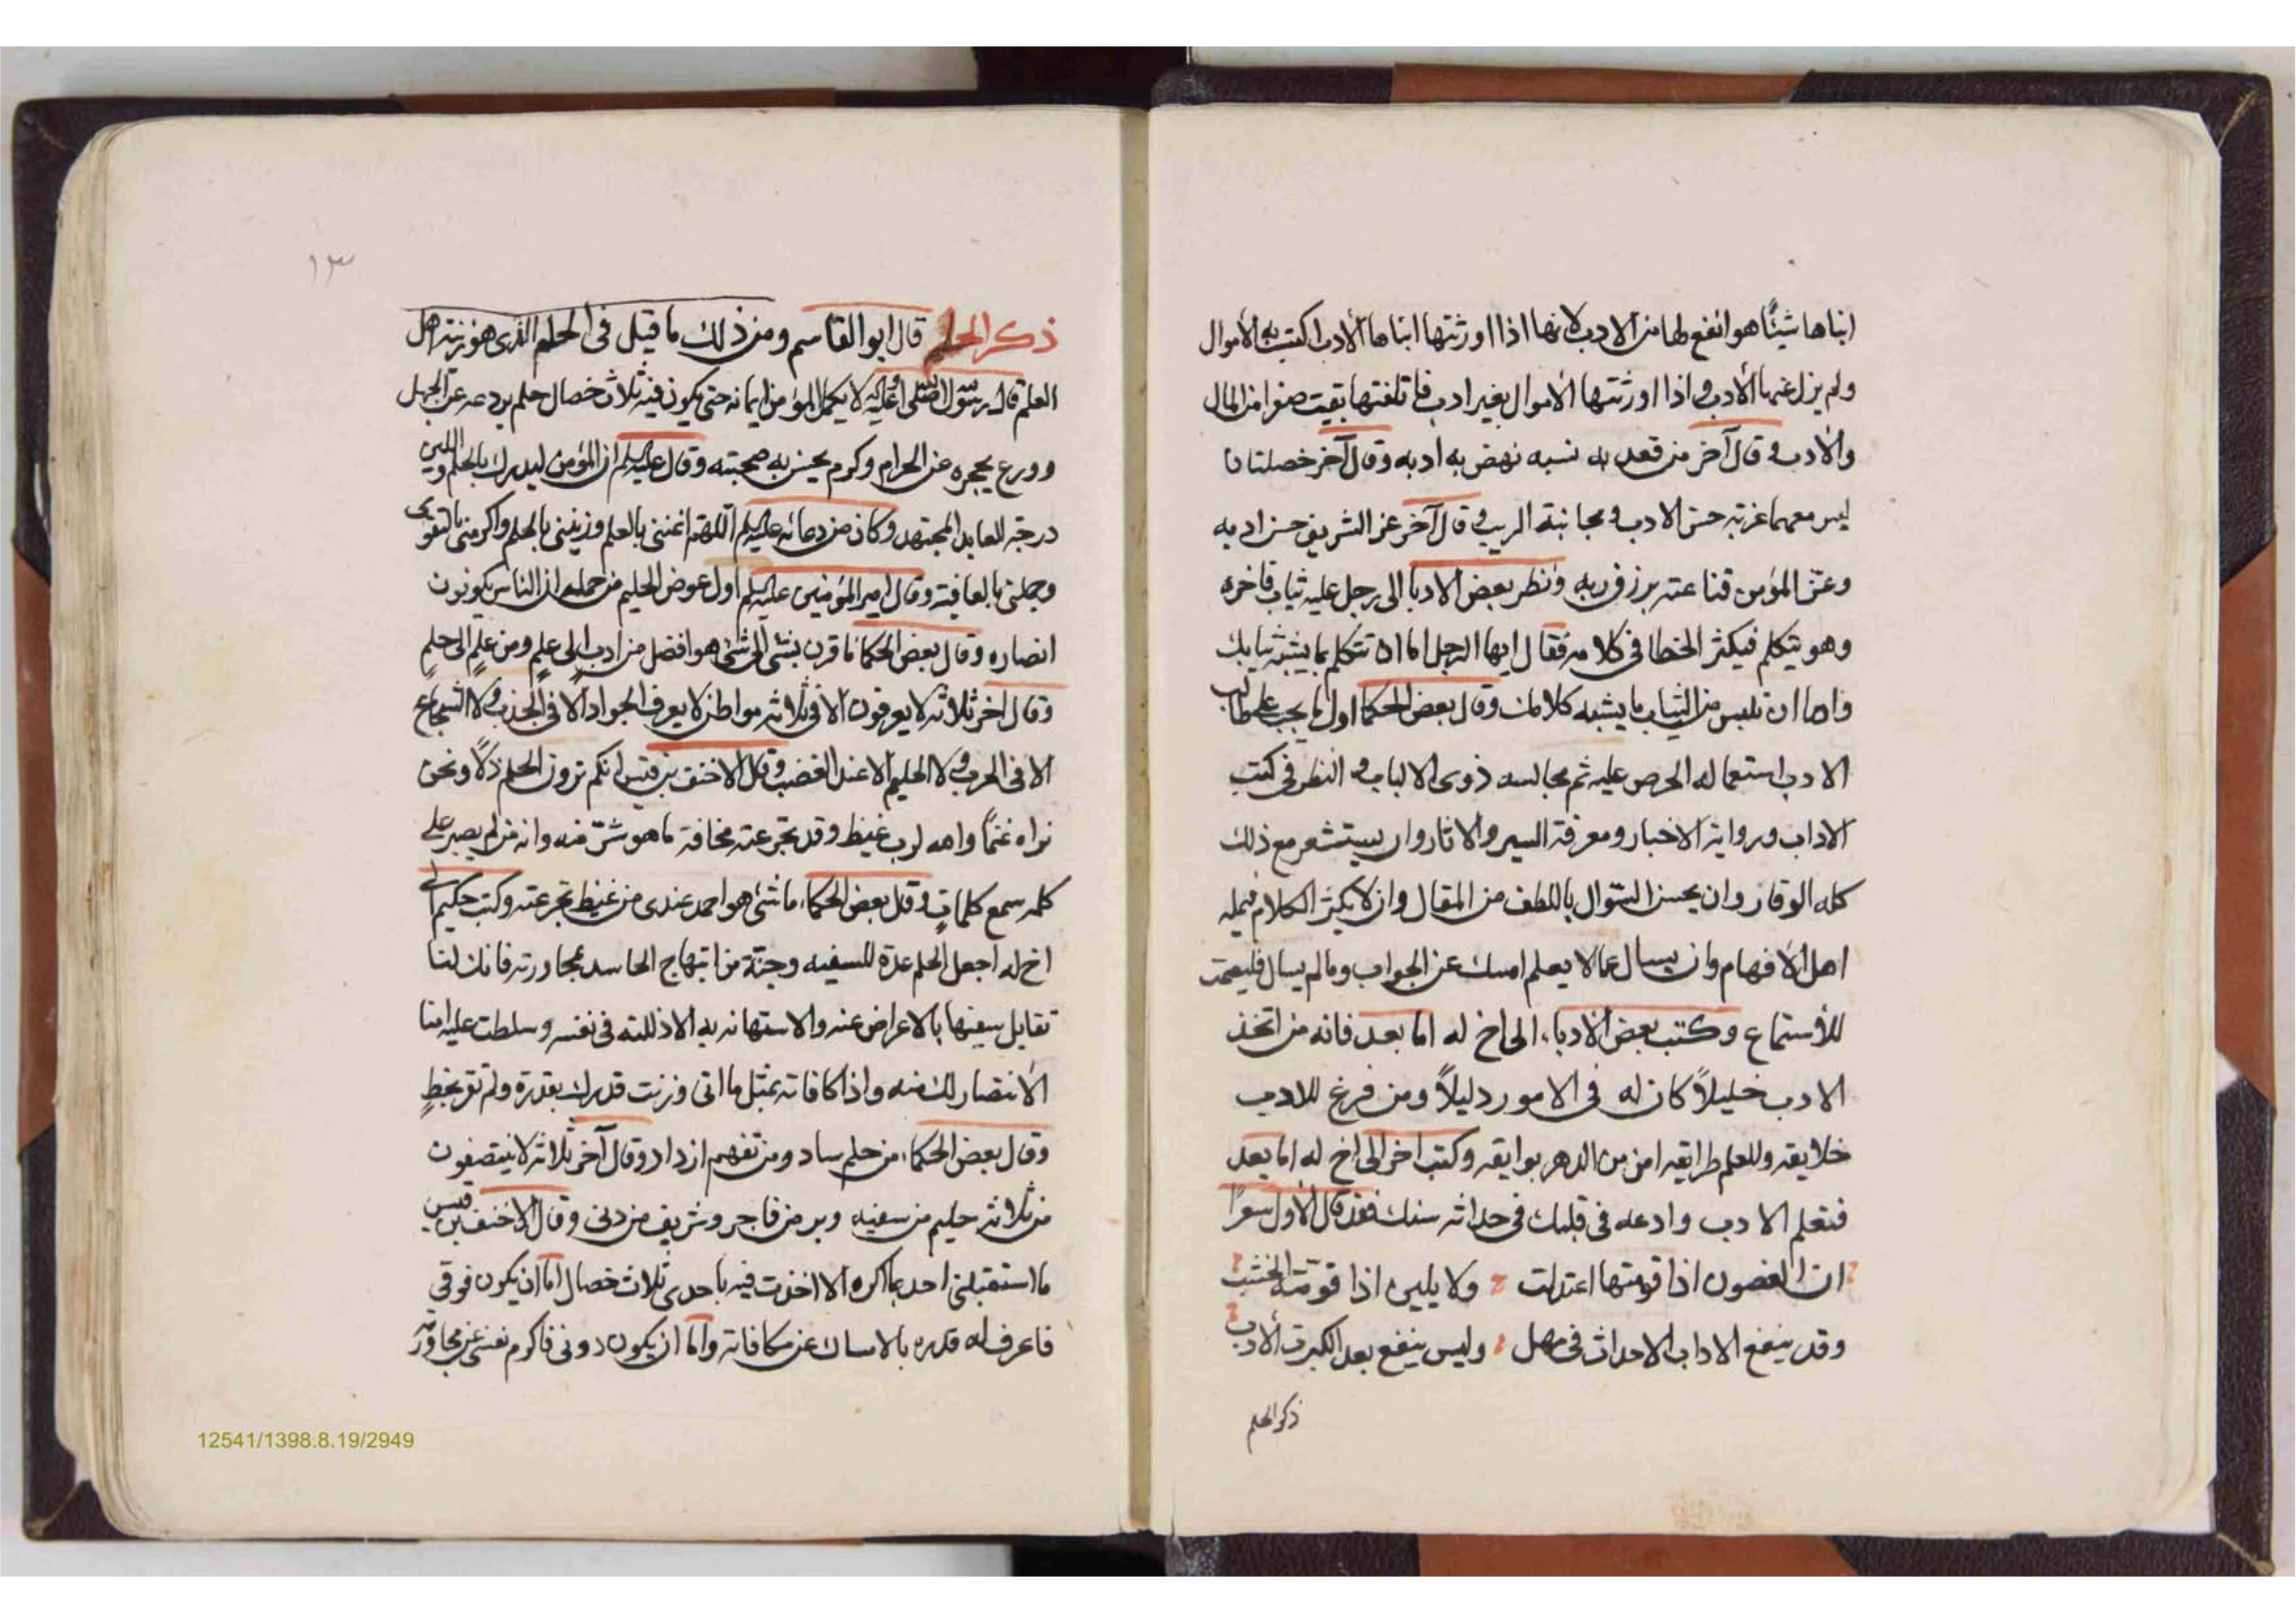 ابناها شيئًا هو انفع لها من الادب لانها اذا اورثتها ابناها الأدب اكتسبت به الأموال
ولم يزل عنها الأدب و اذا اورثتها الأموال بغير ادب فاتلفتها بقيت صفرا من المال
والأدب و قال آخر من قعد به نسبه نهض به ادبه وقال آخر خصلتان
ليس معهما غربة حسن الادب و مجانبة الريب و قال آخر عز الشريف حسن ادبه
وعز المؤمن قناعته برزق ربه ونظر بعض الادبا الى رجل عليه ثياب فاخره
وهو يتكلم فيكثر الخطا فى كلامه فقال ايها الرجل اما ان تتكلم بما يشبه ثيابك
واما ان تلبس من الثياب ما يشبه كلامك وقال بعض الحكما اول ما يجب على طالب
الادب استعماله الحرص عليه ثم مجالسه ذوى الالباب و النظر فى كتب
الاداب و رواية الاخبار ومعرفة السير والاثار وان يستشعر مع ذلك
كله الوقار وان يحسن السّوال باللطف من المقال وان لا يكثر الكلام فيمله
اهل الأفهام وان يسال عما لا يعلم امسك عن الجواب وما لم يسال فليصمت
للأستماع وكتب بعض الادبا، الى اخ له اما بعد فانه من اتخذ
الادب خليلاً كان له فى الامور دليلاً ومن فرغ للادب
خلايقه وللعلم طرايقه امن من الدهر بوايقه وكتب اخر الى اخ له اما بعد
فتعلم الادب وادعه فى قلبك فى حداثه سنك فقد قال الأول شعرًا
ان الغصون اذا قومتها اعتدلت ولا يلين اذا قومته الخشب
وقد ينفع الاداب الاحداث فى مهل وليس ينفع بعد الكبرة الأدب
ذكر الحلم
١٣
ذكر الحلم قال ابو القاسم ومن ذلك ما قيل فى الحلم الذى هو زينة اهل
العلم قال رسول الله صلى الله عليه واله لا يكمل المؤمن ايمانه حتى يكون فيه ثلاث خصال حلم يردعه عن الجهل
وورع يحجره عن الحرام وكرم يحسن به صحبته وقال عليه السلم ان المؤمن ليدرك بالحلم واللين
درجة العابد المجتهد وكان من دعائه عليه السلم اللهم اغننى بالعلم وزينى بالحلم واكرمنى بالتقوى
وجملنى بالعافية وقال امير المؤمنين عليه السلم اول عوض الحليم من حلمه ان الناس يكونون
انصاره وقال بعض الحكما ما قرن بشى الى شى هو افضل من ادب الى علم ومن علم الى حلم
وقال اخر ثلاثه لا يعرفون الا فى ثلاثه مواطن لا يعرف الجواد الا فى الجدب و لا الشجاع
الا فى الحرب و لا الحليم الا عند الغضب وقال الاحنف بن قيس انكم ترون الحلم ذلاً ونحن
نراه غنمًا والله لرب غيظ وقد تجرعته مخافة ما هو شرّ منه وانه من لم يصبر على
كلمه سمع كلمات وقال بعض الحكما، ما شئ هو احمد عندى من غيظ تجرعته وكتب حكيم الى
اخ له اجعل الحلم عدة للسفيه وجنّة من ابتهاج الحاسد بمجاورته فانك لن
تقابل سفيها بالاعراض عنه والاستهانه به الا اذللته فى نفسه وسلطت عليه
الأنتصار لك منه واذا كافاته بمثل ما اتى وزنت قدرك بقدره ولم تؤ بحظٍ
وقال بعض الحكما، من حلم ساد ومن تفهم ازداد وقال آخر ثلاثه لا ينتصفون
من ثلاثه حليم من سفيه وبر من فاجر وشريف من دنى وقال الاحنف بن قيس
ما استقبلنى احد بما اكره الا اخذت فيه باحدى ثلاث خصال اما ان يكون فوقى
فاعرف له قدره بالامساك عن مكافاته واما ان يكون دونى فاكرم نفسى عن مجاورته
12541/1398.8.19/2949